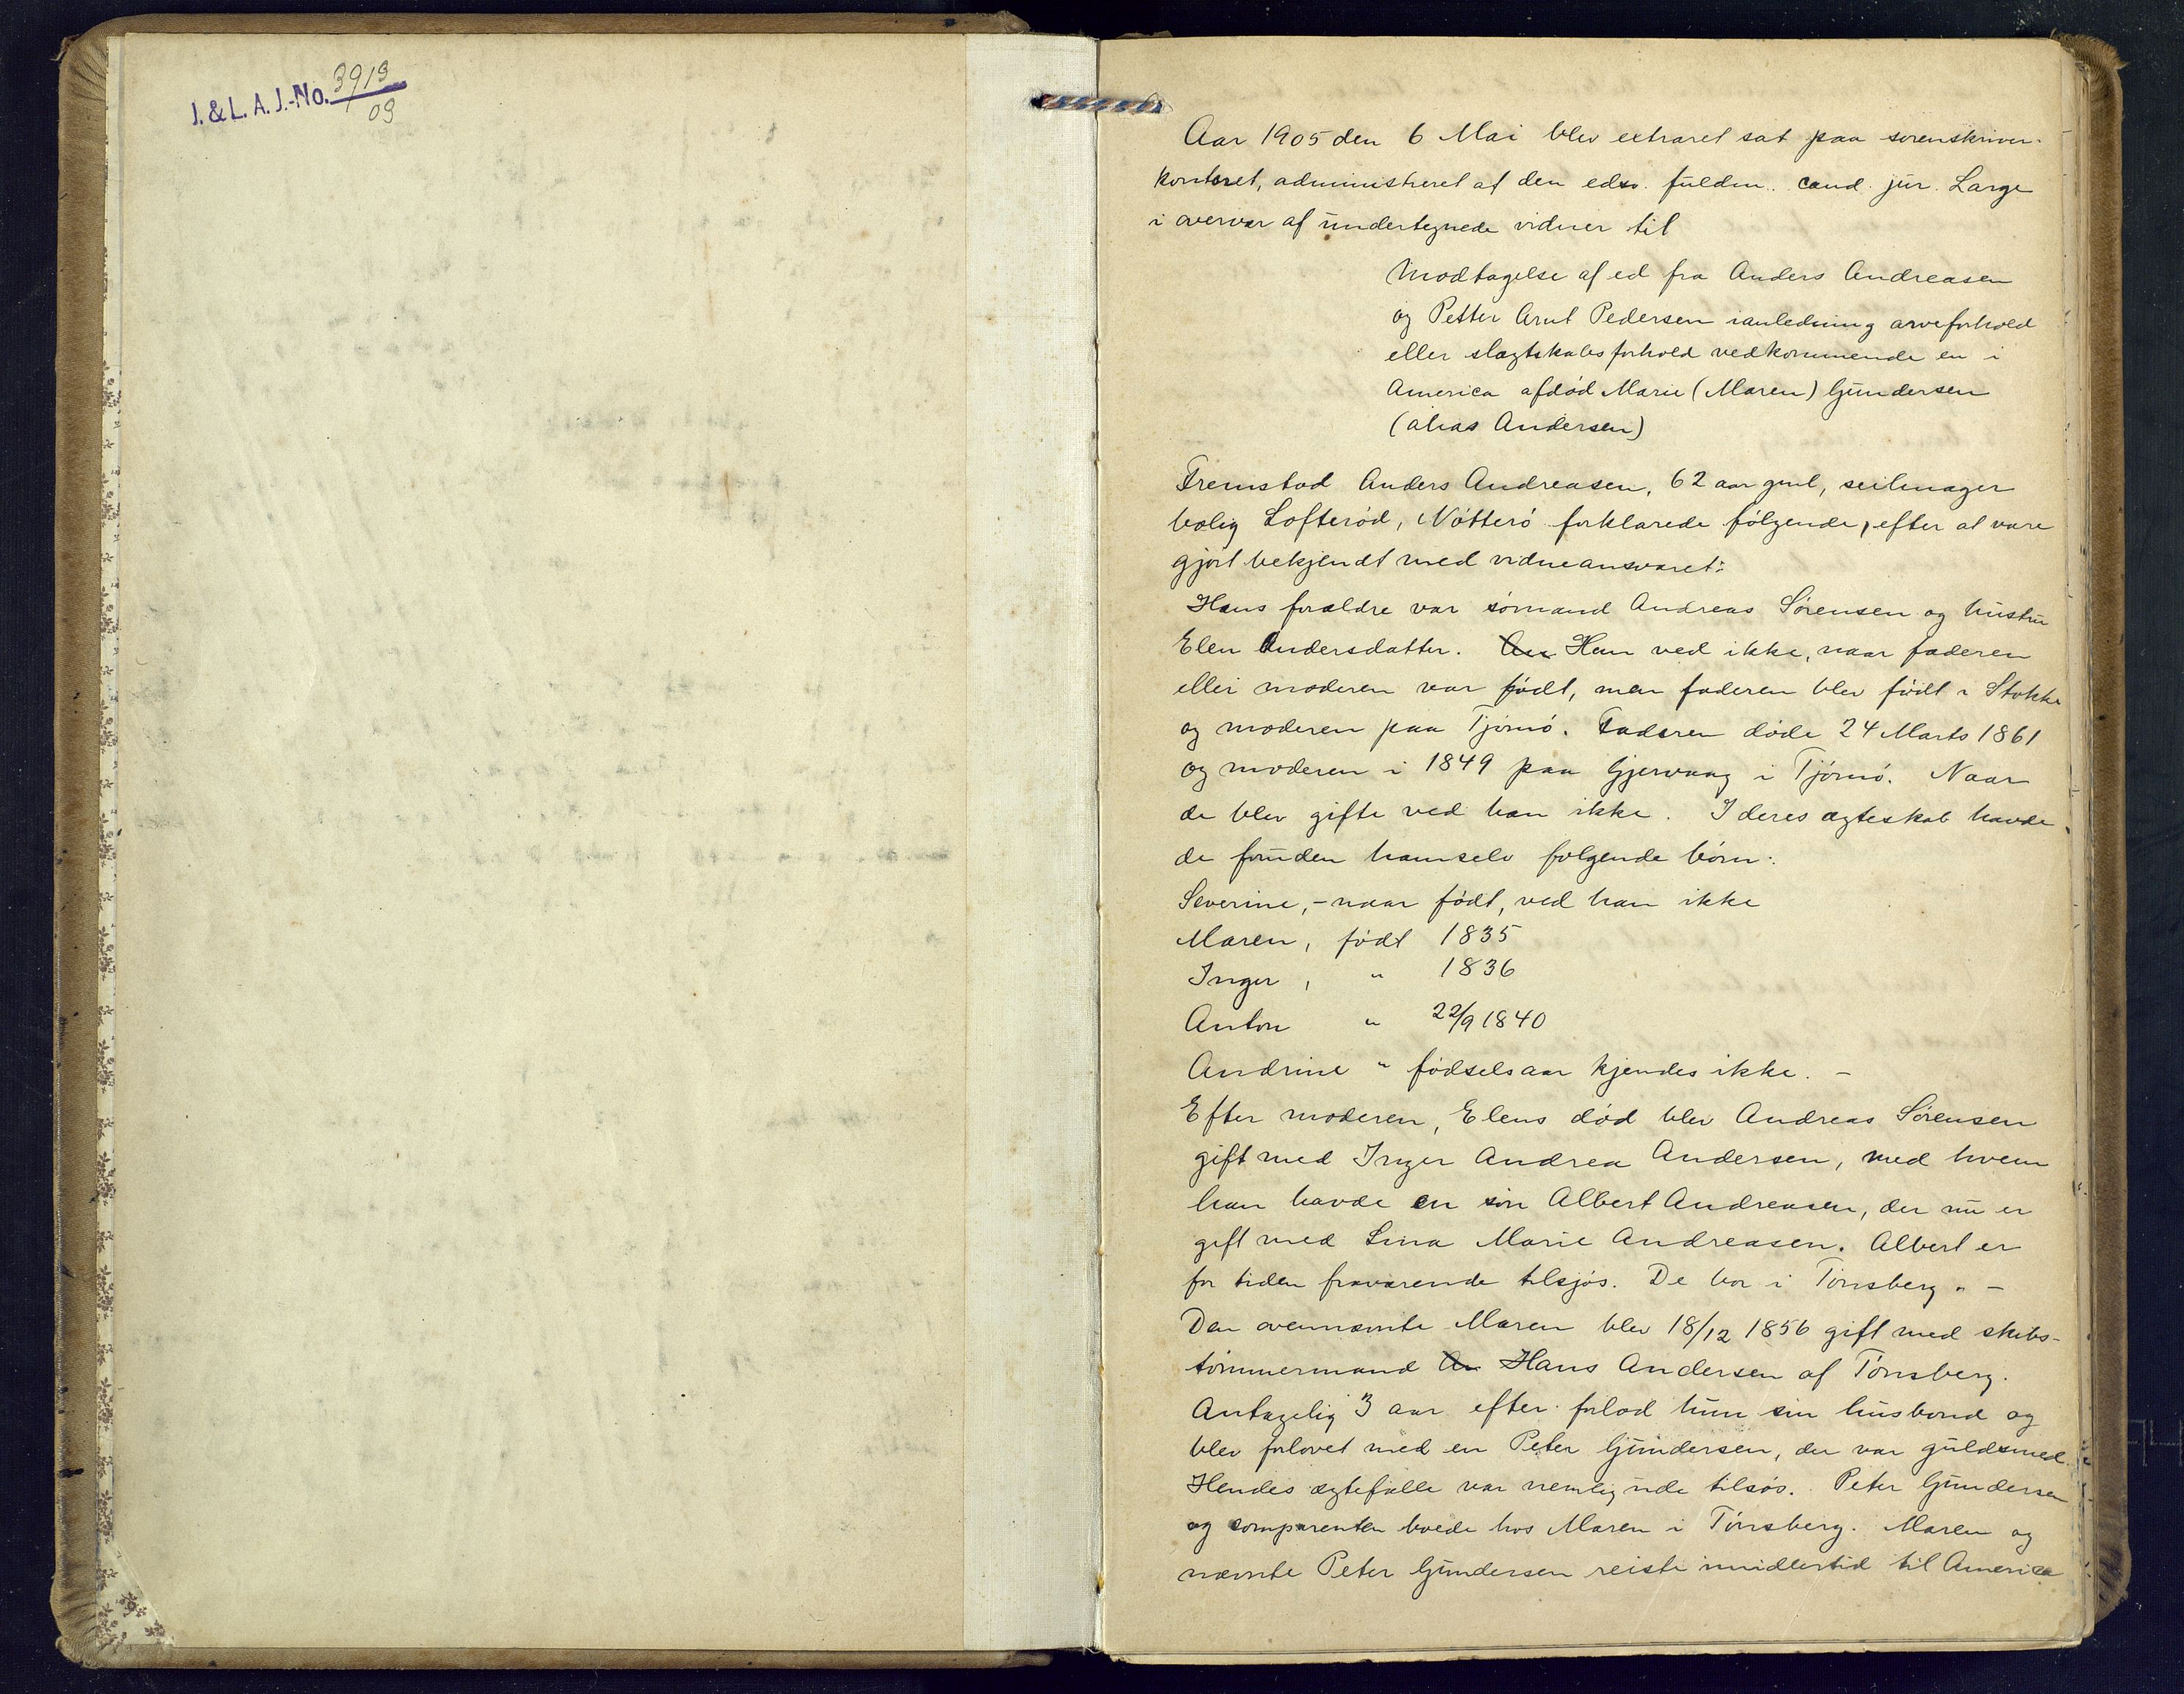 J. & L. A. J.-No. 3913/09
Aar 1905 den 6 Mai blev extraret sat paa sorenskriver-
kontoret, administreret af den edsv. fuldm. cand. jur. Large
i overvær af undertegnede vidner til
Modtagelse af ed fra Anders Andreasen
og Petter Arnt Pedersen ianledning arveforhold
eller slægtskabsforhold vedkommende en i
America afdød Marie (Maren) Gundersen
(alias Andersen)
Fremstod Anders Andreasen, 62 aar gml, seilmager
bolig Lofterød, Nøtterø forklarede følgende, efter at være
gjort bekjendt med vidneansvaret:
Hans forældre var sømand Andreas Sørensen og hustru
Elen Andersdatter. An Han ved ikke, naar faderen
eller moderen var født, men faderen blev født i Stokke
og moderen paa Tjømø. Faderen døde 24 Marts 1861
og moderen i 1849 paa Gjervaag i Tjømø. Naar
de blev gifte ved han ikke. I deres ægteskab havde
de foruden hamselv følgende børn:
Severine, - naar født, ved han ikke
Maren, født 1835
Inger, " 1836
Anton " 22/9 1840
Andrine " fødselsaar kjendes ikke. -
Efter moderen, Elens død blev Andreas Sørensen
gift med Inger Andrea Andersen, med hvem
han havde en søn Albert Andreasen, der nu er
gift med Lina Marie Andreasen. Albert er
for tiden fraværende tilsjøs. De bor i Tønsberg. -
Den ovennævnte Maren blev 18/12 1856 gift med skibs-
tømmermand An Hans Andersen af Tønsberg.
Antagelig 3 aar efter forlod hun sin husbond og
blev forlovet med en Peter Gundersen, der var guldsmed.
Hendes ægtefælle var nemlig ude tilsøs. Peter Gundersen
og comparenten boede hos Maren i Tønsberg. Maren og
nævnte Peter Gundersen reiste imidlertid til America